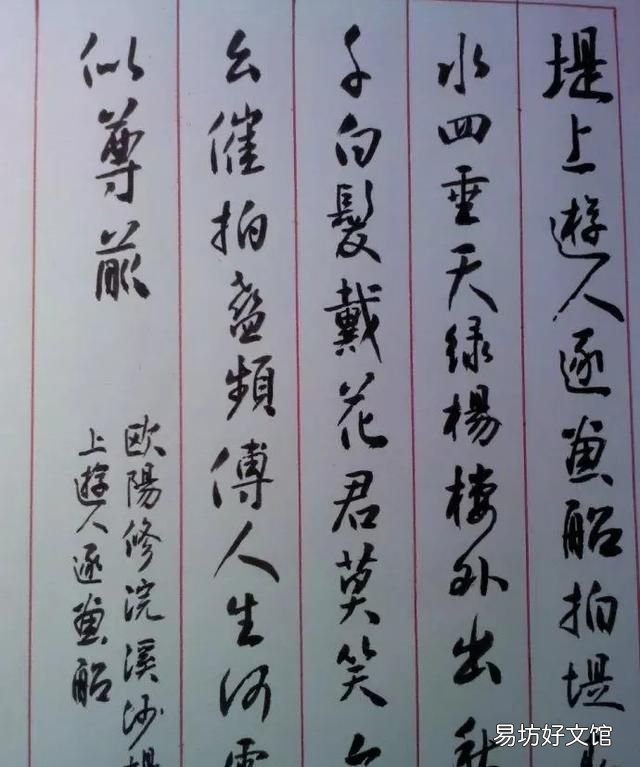 堤上遊人逐畫船拍堤
水四垂天绿楊樓外出秋
千白髮戴花君莫笑六
幺催拍盞頻傳人生何處
似尊前
欧陽修浣溪沙堤
上遊人逐畫船
易坊好文馆